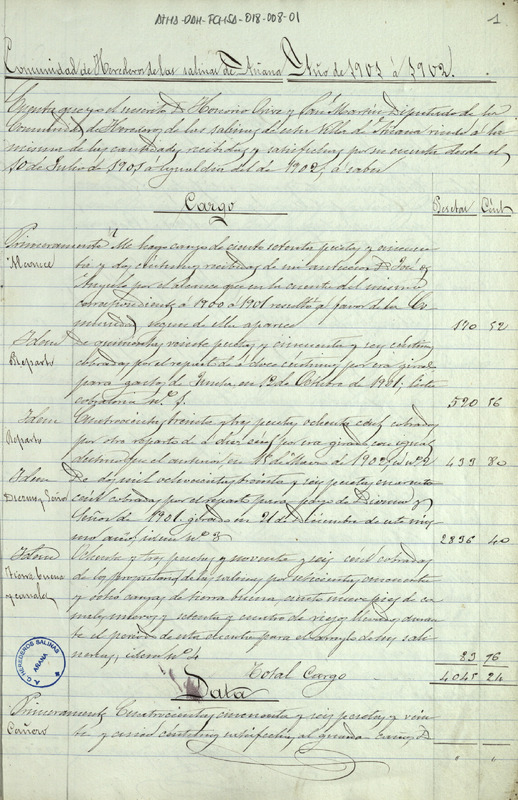 ATHA-DAH-FCHSA-018-008-01
1
Comunidad de Herederos de las salinas de Añana Año de 1901 á 1902.
Cuenta que yo el suscrito D. Honorio Oriz y San Martin Diputado de la
Comunidad de Herederos de las salinas de esta Villa de Añana rindo á la
misma de las cantidades recibidas y satisfechas por mi cuenta desde el
10 de Julio de 1901 á igual dia del de 1902, á saber
Cargo
Pesetas Cént
Primeramente Me hago cargo de ciento setenta pesetas y cincuen-
Alcance ta y dos céntimos recibidas de mi antecesor D. José
Angulo por el alcance que en la cuenta del mismo
correspondiente á 1900 á 1901 resultó á favor de la Co-
munidad, segun de ella aparece 170 52
Idem De quinientas veinte pesetas y cincuenta y seis céntimos
Reparto cobradas por el reparto de á doce céntimos por era girado
para gastos de Junta, en 12 de Octubre de 1901, lista
cobratoria nº 1. 520 56
Idem Cuatrocientas treinta y tres pesetas ochenta cént cobradas
Reparto por otro reparto de á diez cent por era girado con igual
destino que el anterior, en 1º de Marzo de 1902, id nº 2 433 80
Idem De dos mil ochocientas treinta y seis pesetas cuarenta
Diezmo y Soño cént cobradas por el reparto para pago de Diezmo y
de 1901, girado en 21 de Diciembre de este mis-
mo año, idem nº 3 2836 40
Idem Ochenta y tres pesetas y noventa y seis cént cobradas
Tierra buena de los propietarios de las salinas por ochocientas cincuenta
y canales y ocho cargas de tierra buena, ciento nueve pies de ca-
nales nuevos y setenta y cuatro de viejos llevados duran-
te el periodo de esta cuenta para el arreglo de sus sali-
nas, idem nº 4 83 96
Total Cargo 4045 24
C. HEREDEROS SALINAS
AÑANA
Data
Primeramente Cuatrocientas cincuenta y seis pesetas y vein-
Cañero te y cinco céntimos satisfechas al guarda D.
" "